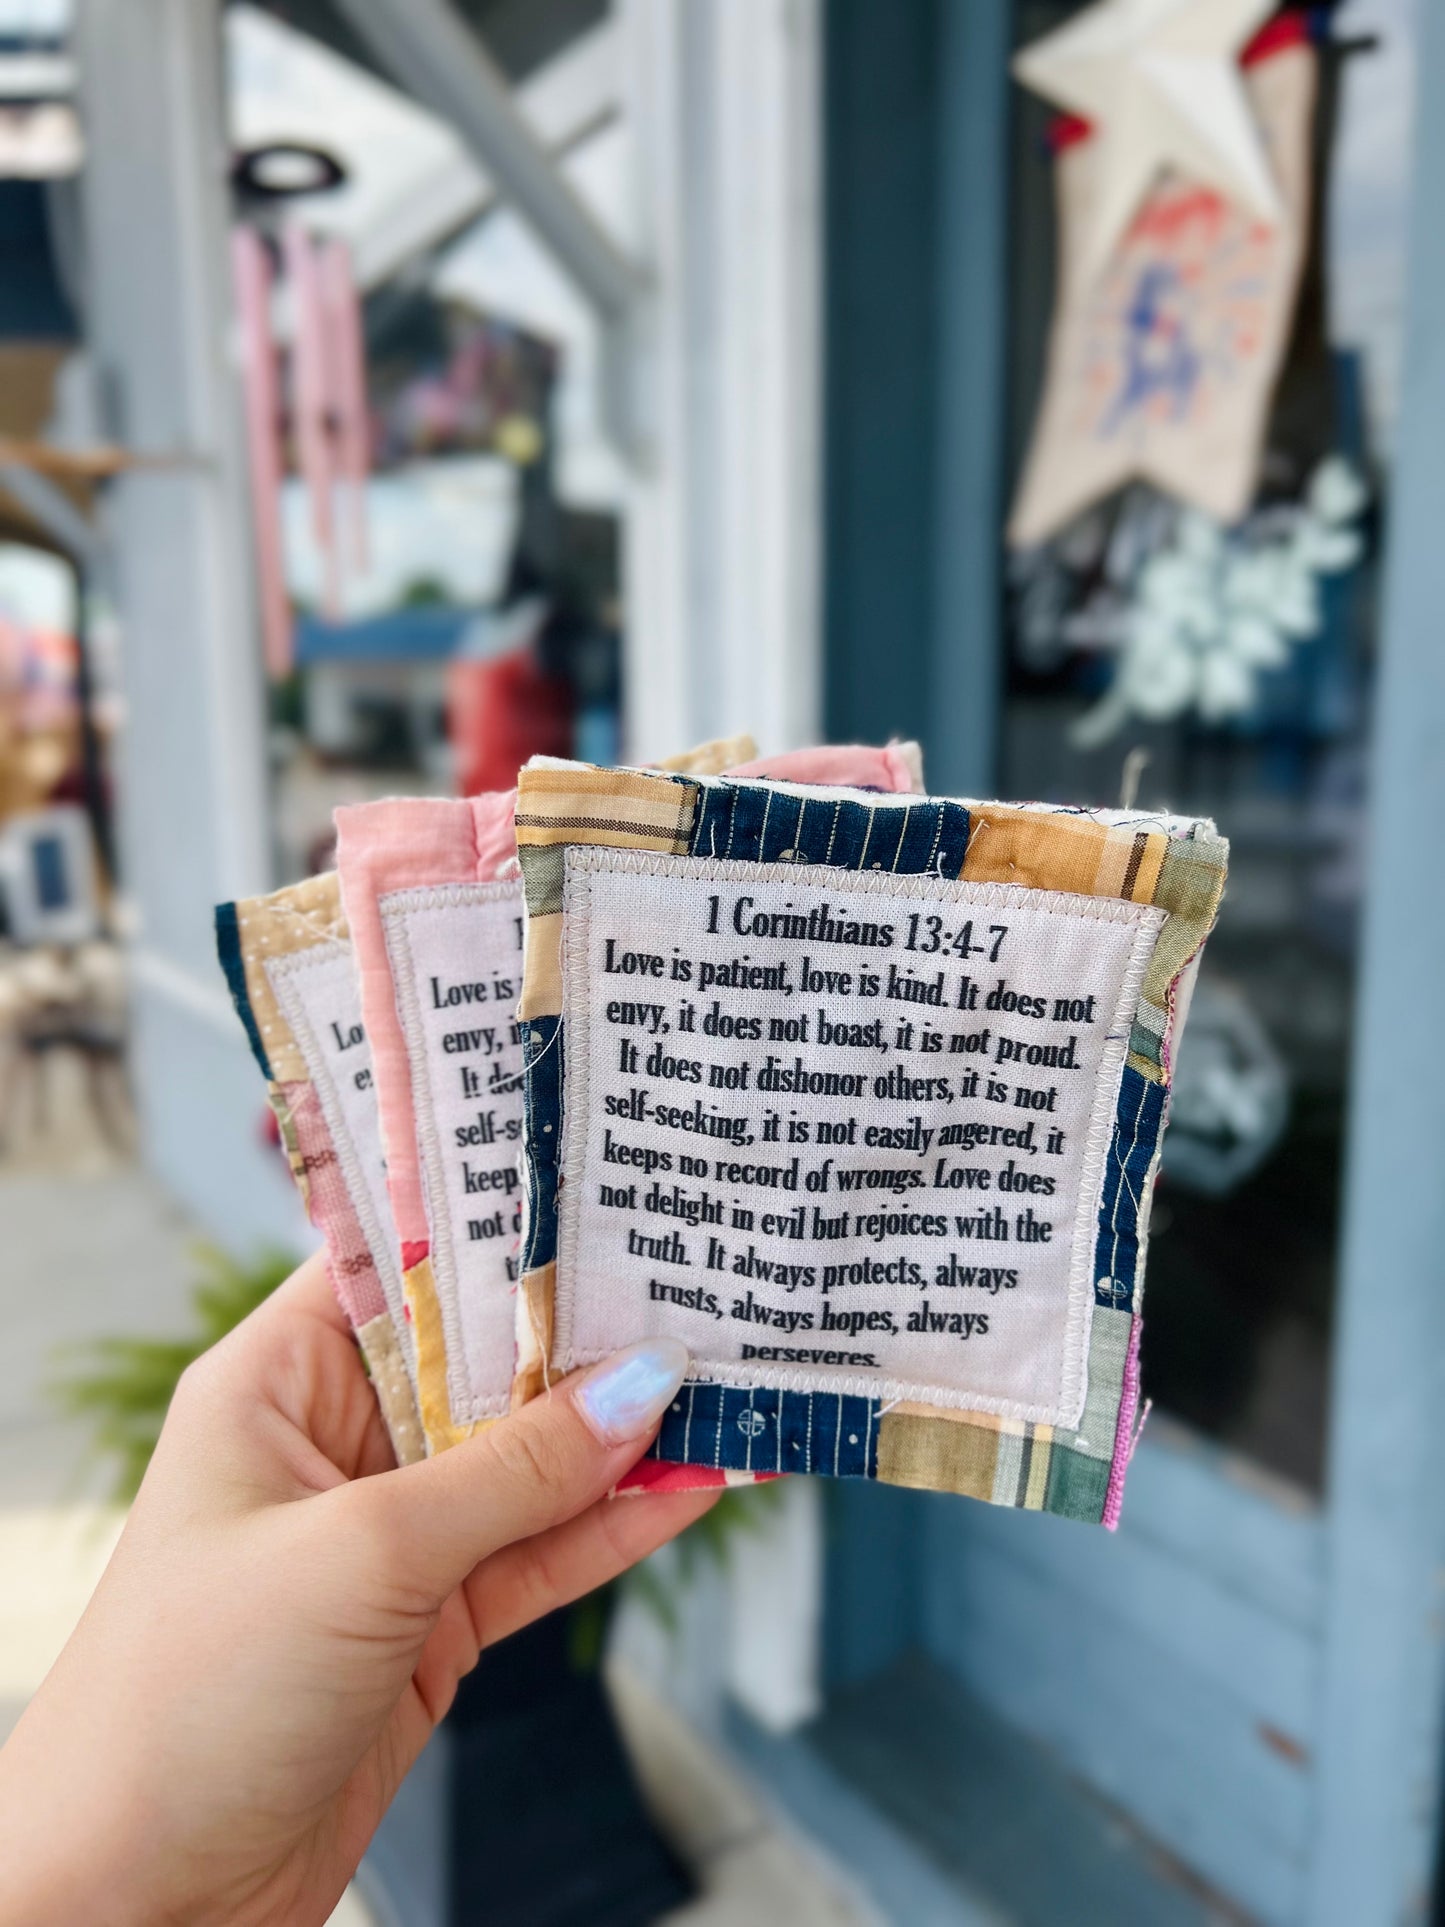 1 Corinthians 13:4-7
Love is patient, love is kind. It does not
envy, it does not boast, it is not proud.
It does not dishonor others, it is not
self-seeking, it is not easily angered, it
keeps no record of wrongs. Love does
not delight in evil but rejoices with the
truth. It always protects, always
trusts, always hopes, always
perseveres.
1
Love is
envy, i
It doe
self-s
keep
not d
t
Lo
e